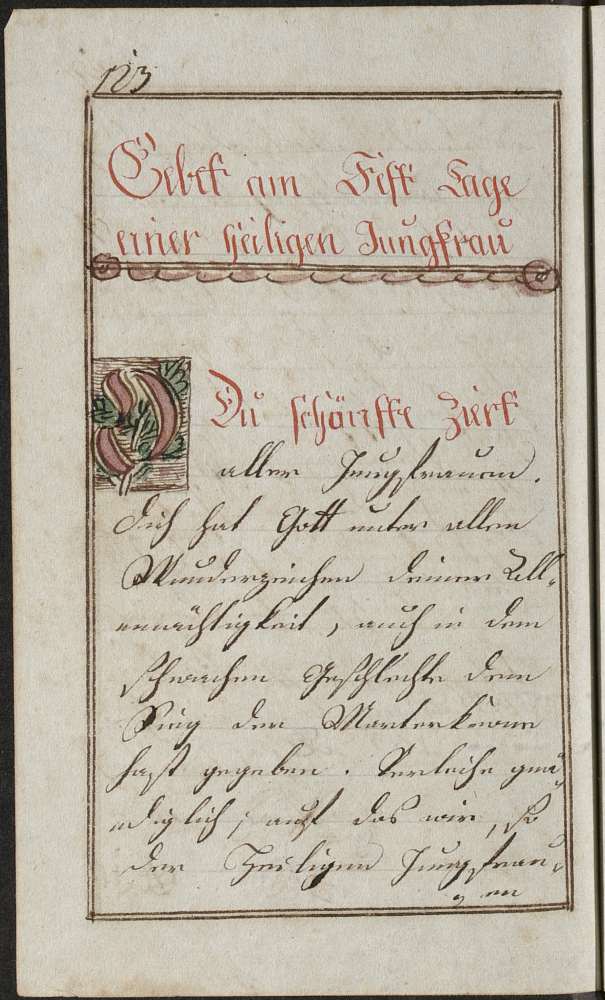 123
Gebet am Fest Tage
einer heiligen Jungfrau
Du schönste Zierk
aller Jungfrauen.
Dich hat Gott unter allen
Wunderzeichen deiner All-
mächtigkeit, auch in dem
schwachen Geschlechte den
Sieg der Marterkrone
hast gegeben. Verleihe gnä-
diglich, auf das wir, so
der Heiligen Jungfrau-
en